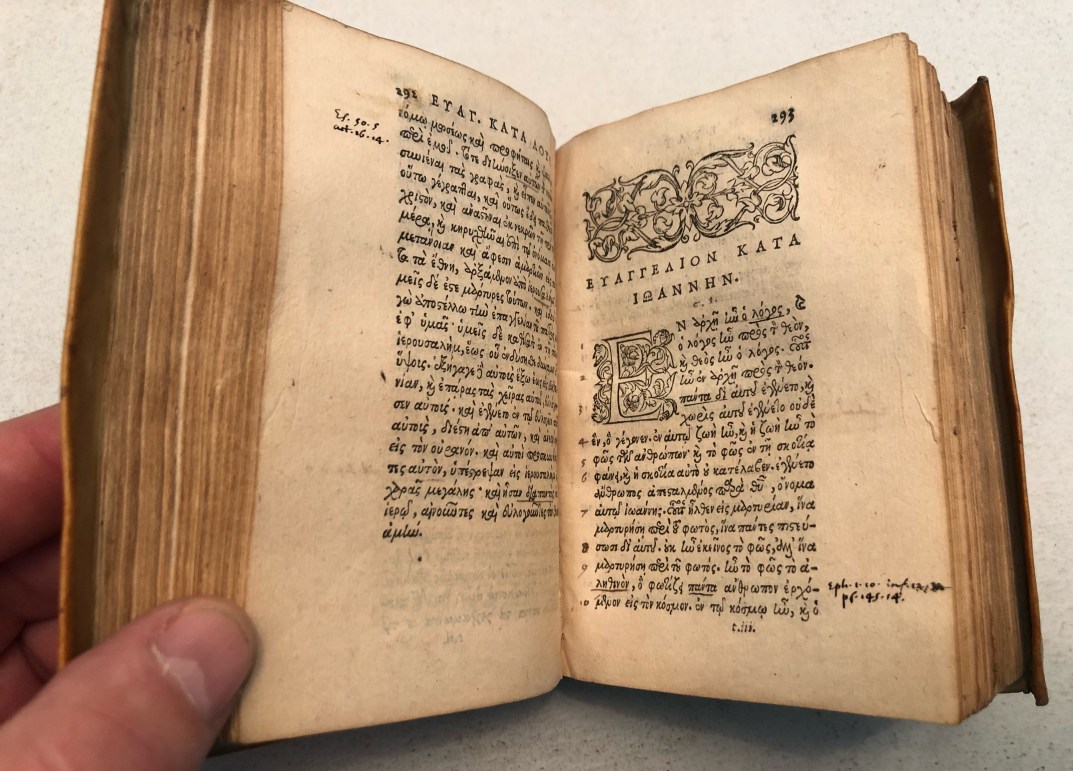 292 ΕΥΑΓ. ΚΑΤΑ ΛΟΥ
νόμῳ μωσέως καὶ προφήταις καὶ
περὶ ἐμοῦ. τότε διήνοιξεν αὐτῶν
συνιέναι τὰς γραφάς, καὶ εἶπεν αὐτοῖς
οὕτω γέγραπται, καὶ οὕτως ἔδει παθεῖν
χριστὸν, καὶ ἀναστῆναι ἐκ νεκρῶν τῇ τρίτῃ
μέρᾳ, καὶ κηρυχθῆναι ἐπὶ τῷ ὀνόματι
μετάνοιαν καὶ ἄφεσιν ἁμαρτιῶν εἰς
τα τὰ ἔθνη, ἀρξάμενον ἀπὸ ἱερουσαλὴμ
μεῖς δέ ἐστε μάρτυρες τούτων. καὶ
γὼ ἀποστέλλω τὴν ἐπαγγελίαν τοῦ πατρός
ἐφ' ὑμᾶς· ὑμεῖς δὲ καθίσατε ἐν τῇ
ἱερουσαλήμ, ἕως οὗ ἐνδύσησθε δύναμιν
ὕψους. ἐξήγαγε δὲ αὐτοὺς ἔξω ἕως εἰς
νίαν, καὶ ἐπάρας τὰς χεῖρας αὐτοῦ, εὐλόγη
σεν αὐτούς. καὶ ἐγένετο ἐν τῷ εὐλογεῖν
αὐτοὺς, διέστη ἀπ' αὐτῶν, καὶ ἀνεφέρετο
εἰς τὸν οὐρανόν. καὶ αὐτοὶ προσκυνήσαν
τες αὐτὸν, ὑπέστρεψαν εἰς ἱερουσαλὴμ
χαρᾶς μεγάλης· καὶ ἦσαν διαπαντὸς
ἱερῷ, αἰνοῦντες καὶ εὐλογοῦντες τὸν
ἀμήν.
293
ΕΥΑΓΓΕΛΙΟΝ ΚΑΤΑ
ΙΩΑΝΝΗΝ.
ΕΝ ἀρχῇ ἦν ὁ λόγος, καὶ
1 ὁ λόγος ἦν πρὸς τὸν θεὸν,
καὶ θεὸς ἦν ὁ λόγος. οὗτος
2 ἦν ἐν ἀρχῇ πρὸς τὸν θεόν.
πάντα δι' αὐτοῦ ἐγένετο, καὶ
3 χωρὶς αὐτοῦ ἐγένετο οὐδὲ
4 ἕν, ὃ γέγονεν. ἐν αὐτῷ ζωὴ ἦν, καὶ ἡ ζωὴ ἦν τὸ
5 φῶς τῶν ἀνθρώπων· καὶ τὸ φῶς ἐν τῇ σκοτίᾳ
6 φαίνει, καὶ ἡ σκοτία αὐτὸ οὐ κατέλαβεν. ἐγένετο
ἄνθρωπος ἀπεσταλμένος παρὰ θεοῦ, ὄνομα
7 αὐτῷ ἰωάννης. οὗτος ἦλθεν εἰς μαρτυρίαν, ἵνα
μαρτυρήσῃ περὶ τοῦ φωτὸς, ἵνα πάντες πιστεύ-
8 σωσι δι' αὐτοῦ. οὐκ ἦν ἐκεῖνος τὸ φῶς, ἀλλ' ἵνα
9 μαρτυρήσῃ περὶ τοῦ φωτός. ἦν τὸ φῶς τὸ ἀ-
ληθινὸν, ὃ φωτίζει πάντα ἄνθρωπον ἐρχό-
10 μενον εἰς τὸν κόσμον. ἐν τῷ κόσμῳ ἦν, καὶ ὁ
τ.iii.